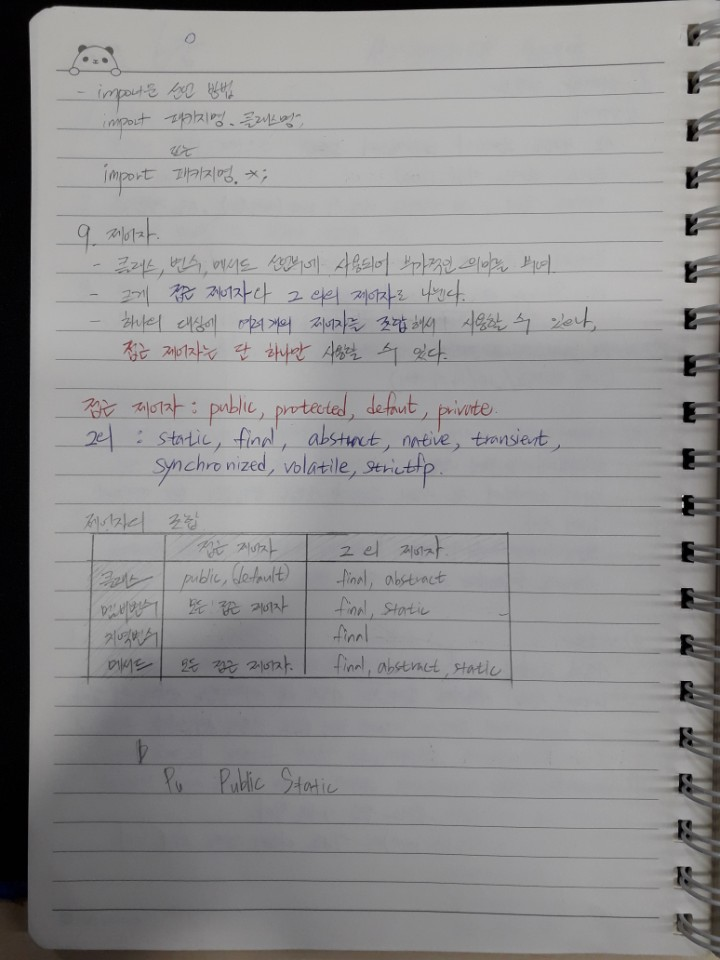 - import문 선언 방법
import 패키지명.클래스명;
또는
import 패키지명.*;
9. 제어자.
- 클래스, 변수, 메서드 선언부에 사용되어 부가적인 의미를 부여.
- 크게 접근 제어자다 그 외의 제어자로 나뉜다.
- 하나의 대상에 여러개의 제어자를 조합해서 사용할 수 있으나,
접근 제어자는 단 하나만 사용할 수 있다.
접근 제어자 : public, protected, defaut, private.
그외 : static, final, abstract, native, transient,
synchronized, volatile, strictfp.
제어자의 조합
접근 제어자 그 외 제어자.
클래스 public, (default) final, abstract
멤버변수 모든 접근 제어자 final, static
지역변수 final
메서드 모든 접근 제어자. final, abstract, static
Pu Public Static